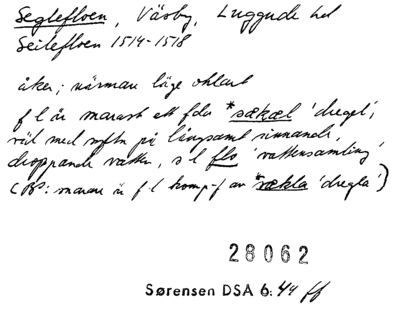 Seglefloen, Väsby, Luggude hd
Seilefloen 1514-1518
åker; närmare läge oklart
f l är snarast ett fda *sækæl 'dregel',
väl med syftn på långsamt rinnande,
droppande vatten, s l flo 'vattensamling'
(BP: snarare är f l komp-f av *sækla 'dregla')
28062
Sørensen DSA 6:44 ff